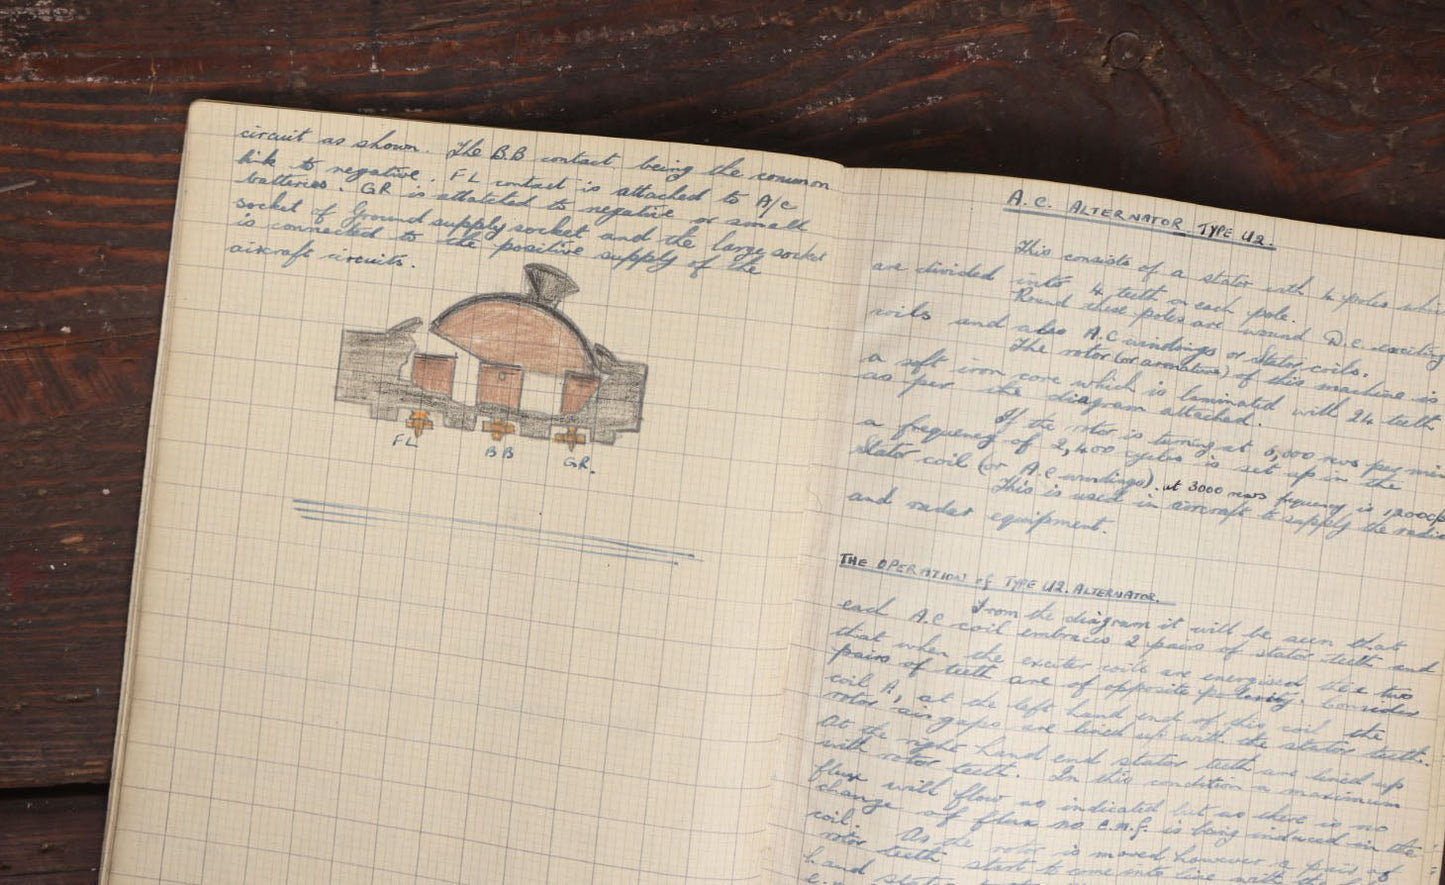 circuit as shown. The B.B contact being the common
link to negative. FL contact is attached to A/c
batteries. GR is attatched to negative or small
socket of Ground supply socket and the large socket
is connected to the positive supply of the
aircraft circuits.
FL
BB
GR.
A.C. ALTERNATOR TYPE U2.
This consists of a stator with 4 poles which
are divided into 4 teeth on each pole.
Round these poles are wound D.C. exciting
coils and also A.C windings or Stator coils.
The rotor (or armature) of this machine is
a soft iron core which is laminated with 24 teeth
as per the diagram attached.
If the rotor is turning at 6,000 revs per min
a frequency of 2,400 cycles is set up in the
Stator coil (or A.C windings). at 3000 revs frequency is 1200
This is used in aircraft to supply the radio
and radar equipment.
THE OPERATION of TYPE U2. ALTERNATOR.
From the diagram it will be seen that
each A.C coil embraces 2 pairs of stator teeth and
that when the exciter coils are energised these two
pairs of teeth are of opposite polarity. Consider
coil A, at the left hand end of this coil the
rotor air gaps are lined up with the stator teeth.
At the right hand end stator teeth are lined up
with rotor teeth. In this condition a maximum
flux will flow as indicated but as there is no
change of flux no E.M.F. is being induced in the
coil. As the rotor is moved however a pair of
rotor teeth start to come into line with
hand stator